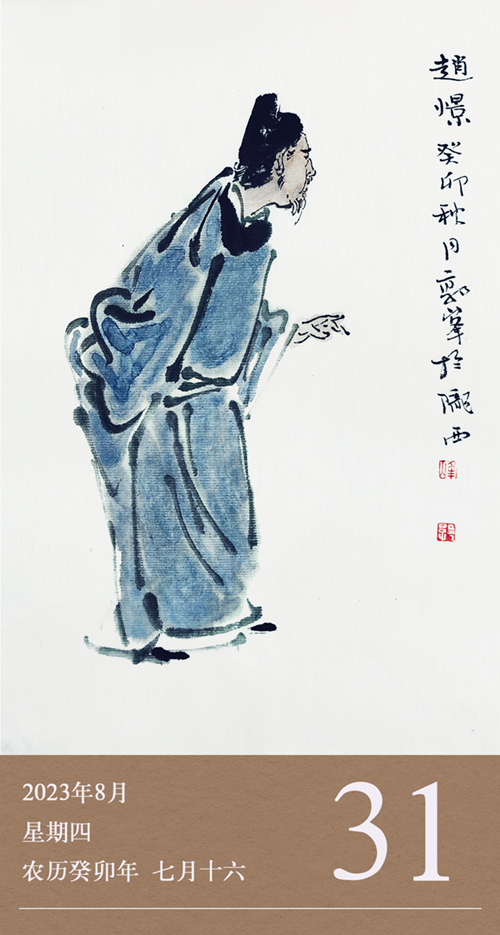 趙憬
癸卯秋月郭峯於隴西
2023年8月
星期四
农历癸卯年 七月十六
31